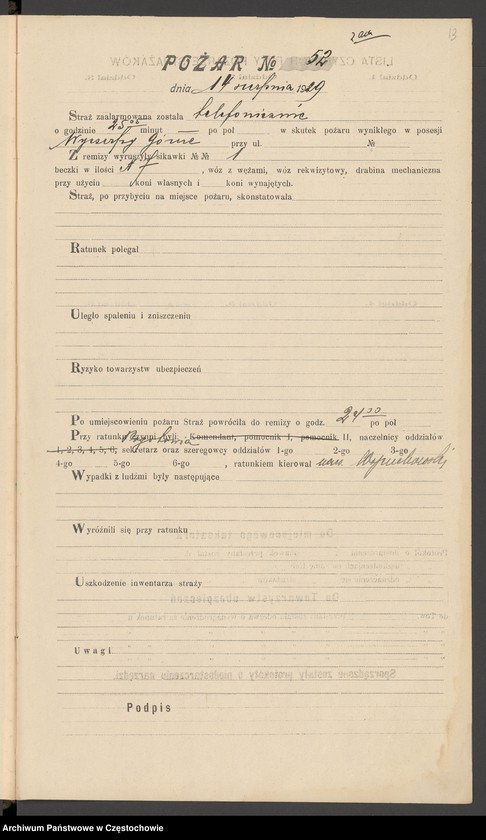 13
POŻAR № 52
dnia 14 sierpnia 1929
Straż zaalarmowana została telefonicznie
o godzinie minut — po poł w skutek pożaru wynikłego w posesji
Górne przy ul. №
Z remizy wyruszyły sikawki №№ 1
beczki w ilości , wóz z wężami, wóz rekwizytowy, drabina mechaniczna
przy użyciu koni własnych i koni wynajętych.
Straż, po przybyciu na miejsce pożaru, skonstatowała
Ratunek polegał
Uległo spaleniu i zniszczeniu
Ryzyko towarzystw ubezpieczeń
Po umiejscowieniu pożaru Straż powróciła do remizy o godz. 24 00 po poł
Przy ratunku czynni byli: Komendant, pomocnik I, pomocnik II, naczelnicy oddziałów
1, 2, 3, 4, 5, 6, sekretarz oraz szeregowcy oddziałów 1-go 2-go 3-go
4-go 5-go 6-go , ratunkiem kierował
Wypadki z ludźmi były następujące
Wyróżnili się przy ratunku
Uszkodzenie inwentarza straży
Uwagi
Podpis
Archiwum Państwowe w Częstochowie